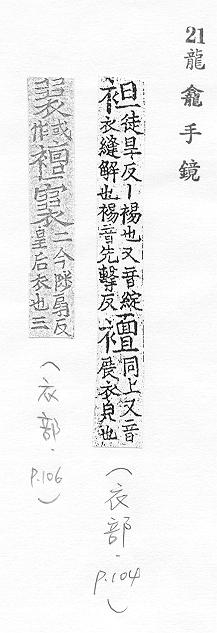 21 龍龕手鏡
袒徒旱反丨裼也又音綻
衣縫解也裼音先擊反
襢同上又音
展衣皃也
(衣部.p.104)
或作襢
二今陟扇反
皇后衣也三
(衣部.p.106)